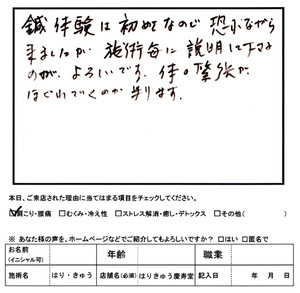 鍼体験は初めてなので恐ふながら
来ましたが 施術毎に説明して下さる
のが、よろしいです。体の緊張が
ほぐれていくのが判ります。
本日、ご来店された理由に当てはまる項目をチェックしてください。
☑肩こり・腰痛 □むくみ・冷え性 □ストレス解消・癒し・デトックス □その他( )
※ あなた様の声を、ホームページなどでご紹介してもよろしいですか? □はい □匿名で
お名前
(イニシャル可)
年齢
職業
施術名
はり・きゅう
店舗名(必須)
はりきゅう慶寿堂
記入日
年 月 日